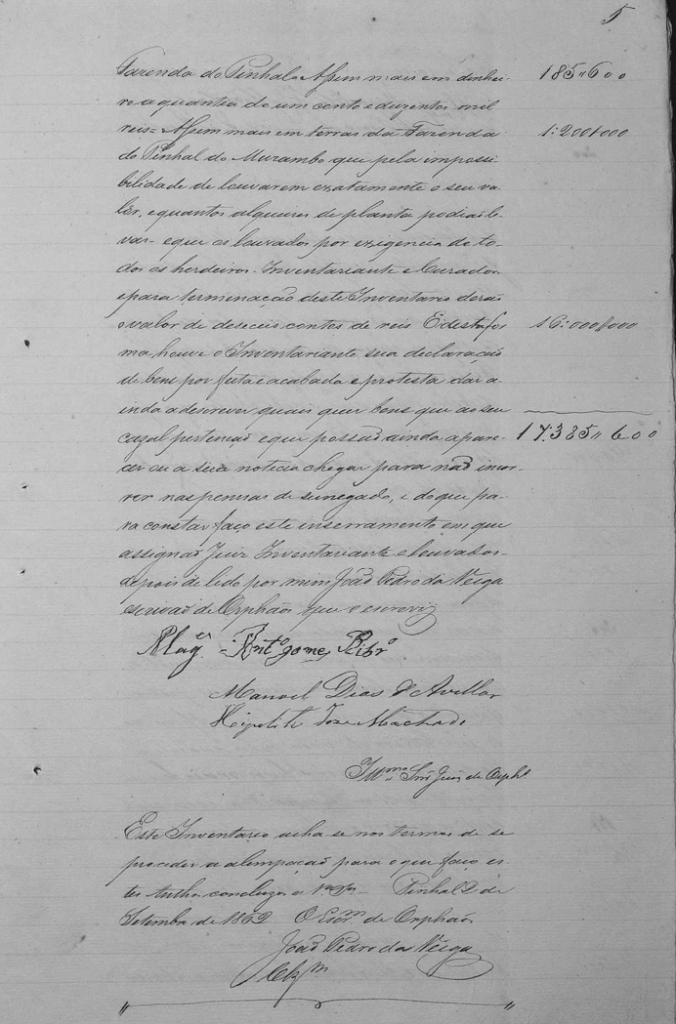 5
Fazenda do Pinhal. Assim mais em dinhei- 185"600
ro a quantia de um conto e duzentos mil
reis= Assim mais em terras da Fazenda 1:200$000
do Pinhal do Murambo que pela impossi
bilidade de louvarem exatamente o seu va
lôr, e quantos alqueires de planta podiaõ le-
var- e que os louvados por exigencia de to-
dos os herdeiros. Inventariante e Curador
e para terminação deste Inventario deraõ
o valor de deseceis contos de reis E desta for 16:000$000
ma, houve o Inventariante sua declaração
de bens por feita e acabada e protesta dar a
inda a descrever quais quer bens que ao seu
cazal pertençaõ e que possaõ ainda apare- 17:385"600
cer ou a sua noticia chegar para naõ incor
rer nas pennas de sunegado, e do que pa-
ra constar faço este inserramento em que
assignaõ Juiz Inventariante e louvados-
depois de lido por mim Joaõ Pedro da Veiga
escrivaõ de Orphaõs que o escrevi
Antº gomes Ribrº
Manoel Dias d'Avellar
Hipolito Jose Machado
Illmo Snr Juiz de Orphs
Este Inventario acha se nos termos de se
proceder a alimpação para o que faço es-
tes Pinhal 2 de
Setembro de 1862 O Escrm de Orphaõs
Joaõ Pedro da Veiga